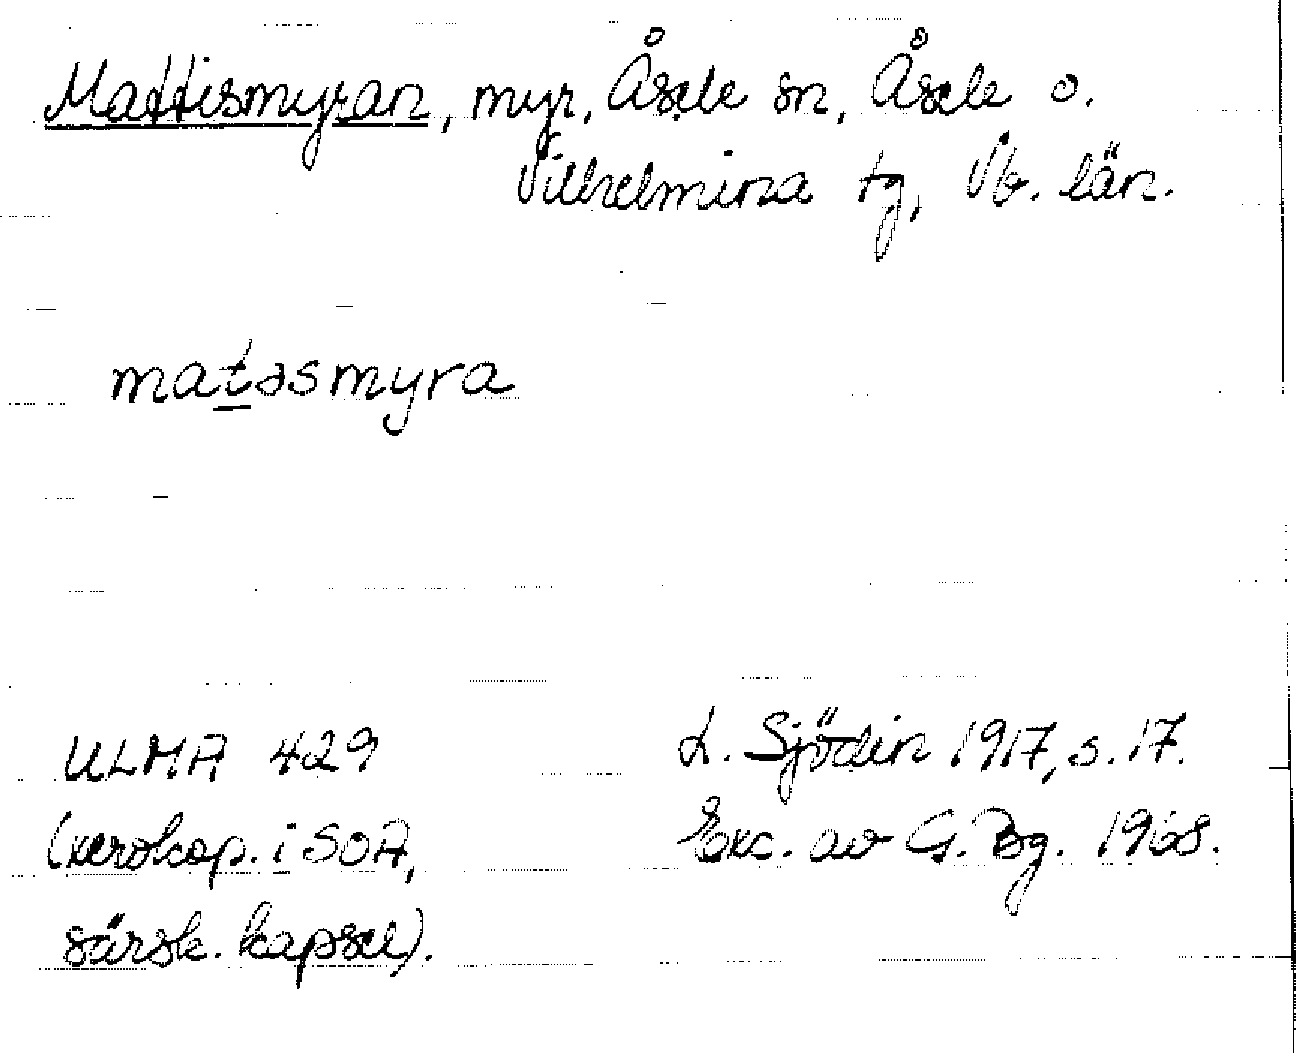 Mattismyran, myr, Åsele sn, Åsele o.
Vilhelmina tg, Vb. län.
matəsmyra
ULMA 429
L. Sjödin 1917, s. 17.
(xerokop. i SOA,
Exc. av G. Bg. 1968.
särsk. kapsel).